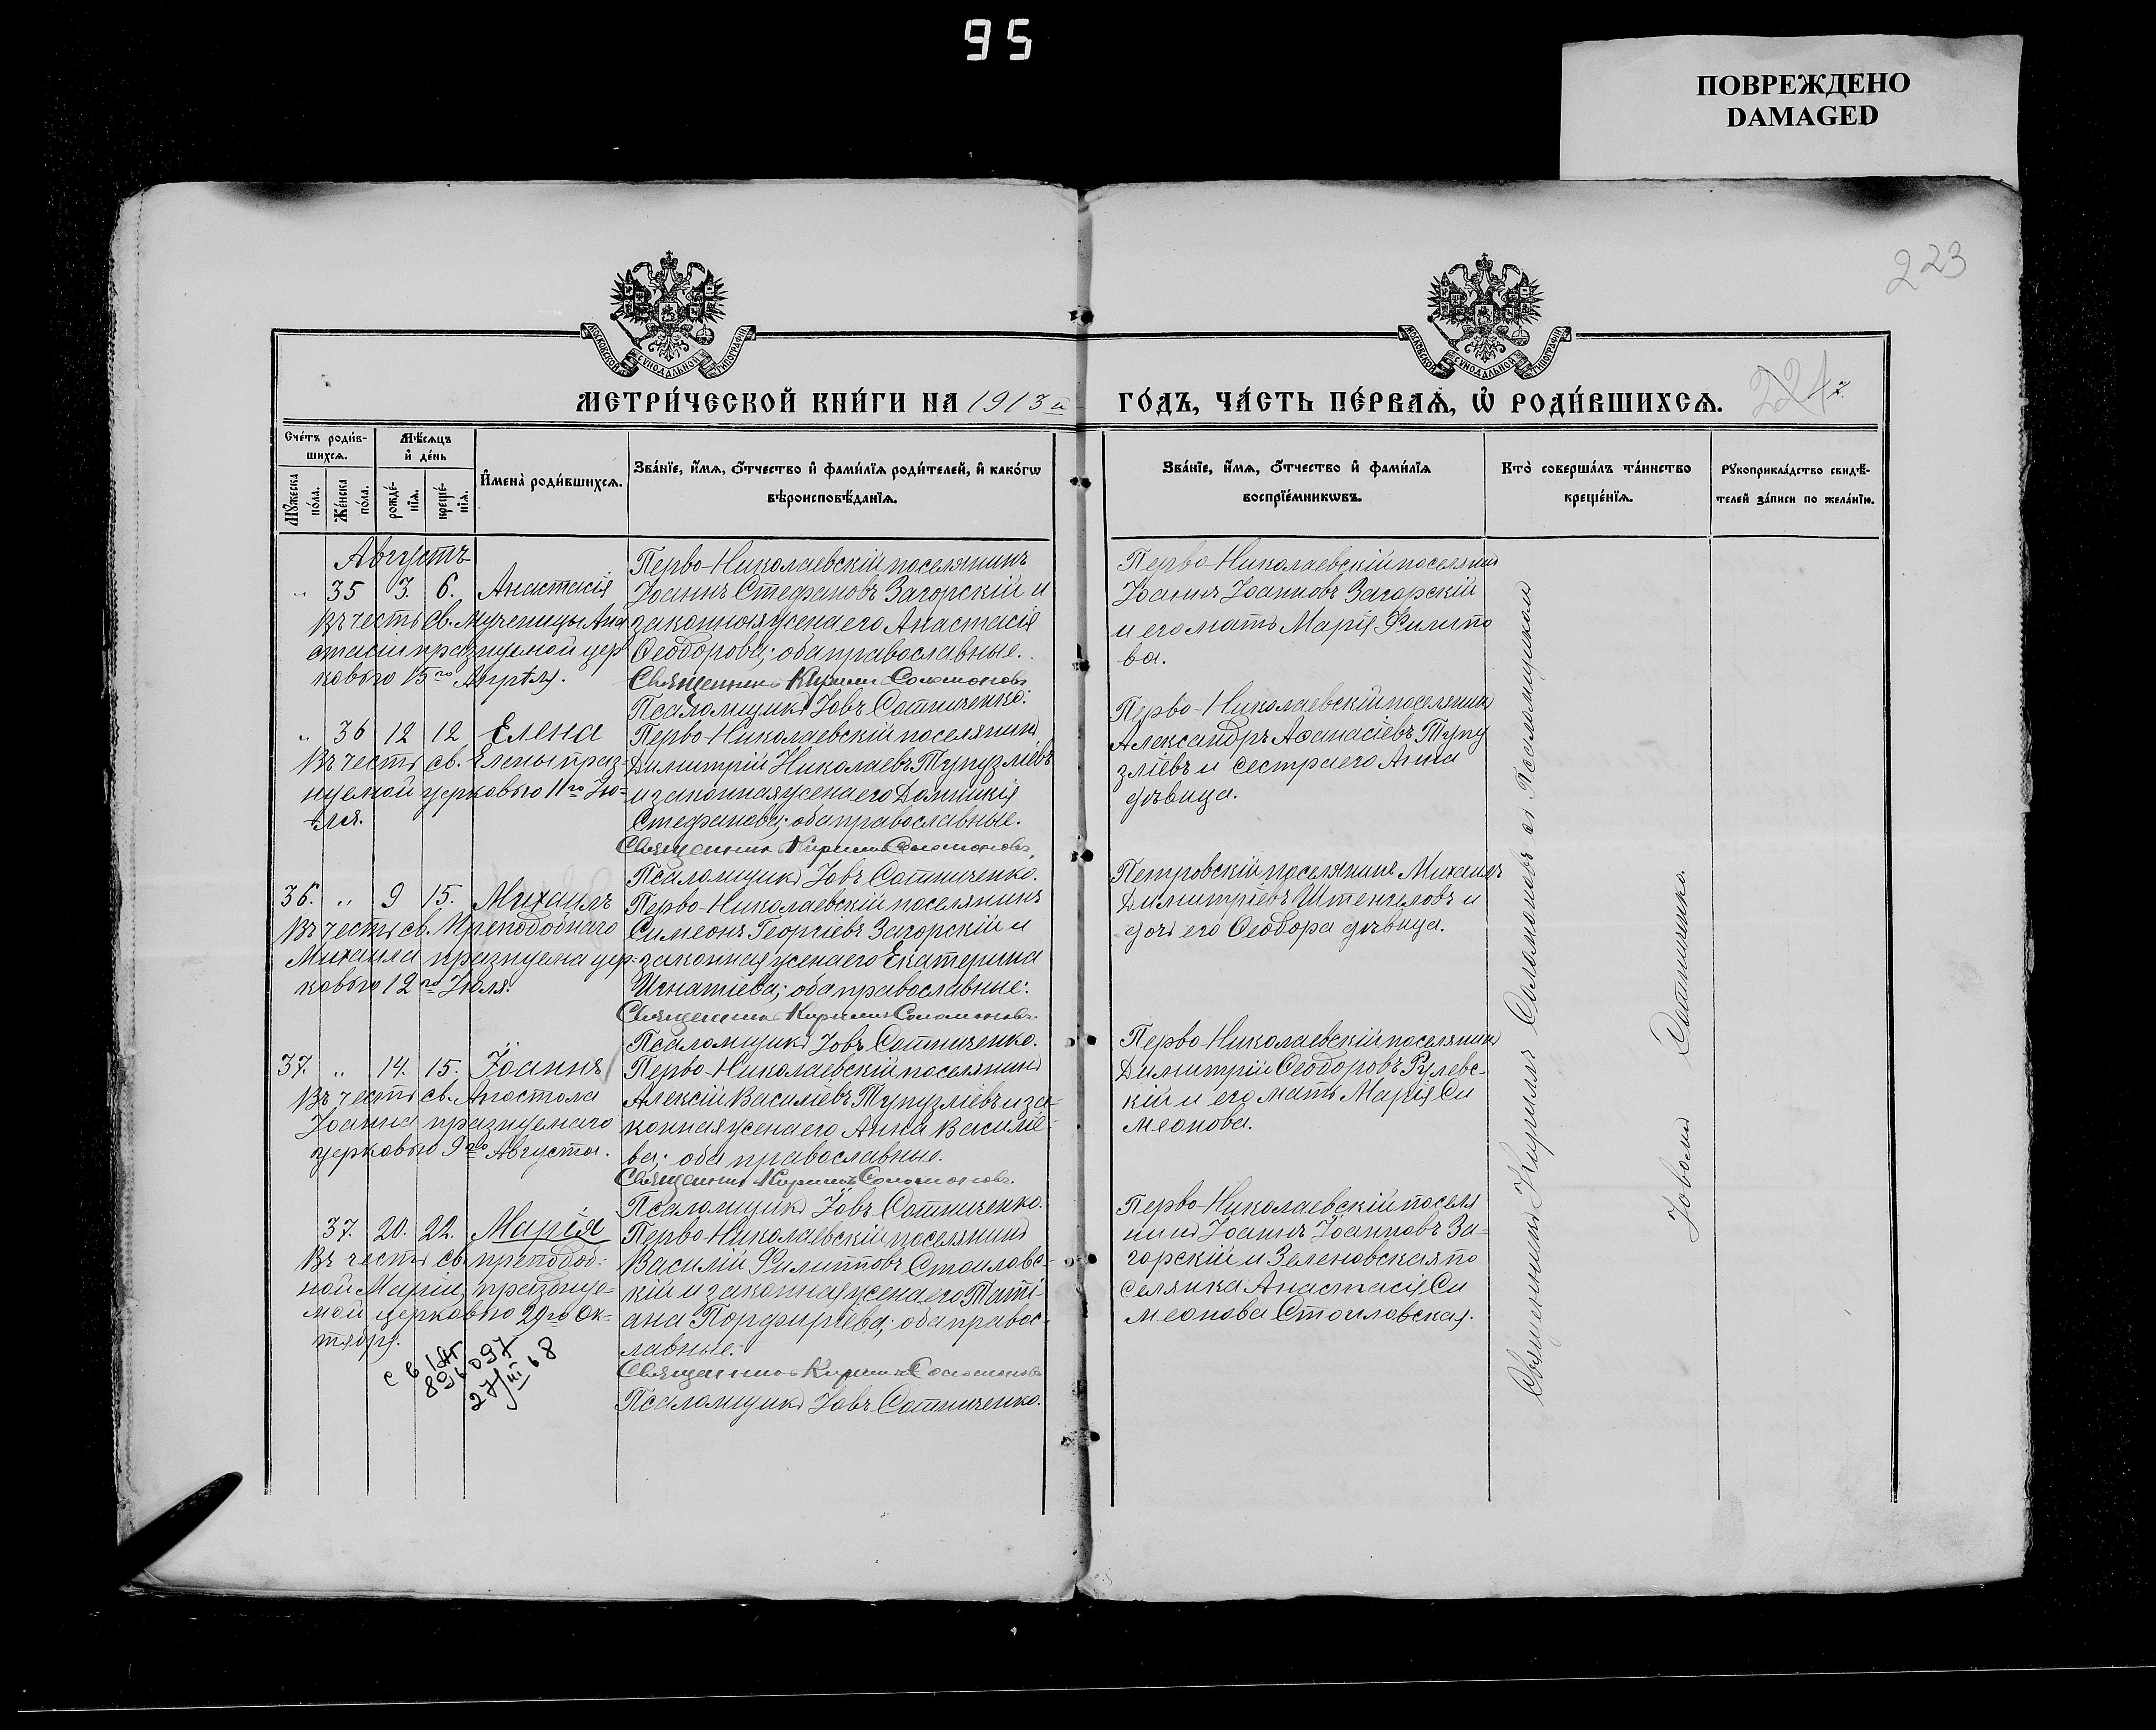 95
ПОВРЕЖДЕНО
DAMAGED
223
МОСКОВСКОЙ СѴНОДАЛЬНОЙ ТИПОГРАФІИ
МОСКОВСКОЙ СѴНОДАЛЬНОЙ ТИПОГРАФІИ
МЕТРИ́ЧЕСКОЙ КНИ́ГИ НА 1913й ГО́ДЪ, ЧА́СТЬ ПЕ́РВАѦ, Ѡ РОДИ́ВШИХСѦ.
Сче́тъ роди́в-
шихсѧ.
Мѣ́сѧцъ
и҆ де́нь
Мꙋ́жеска
по́ла.
Же́нска
по́ла.
рожде́-
нїѧ.
креще́-
нїѧ.
И҆мена̀ роди́вшихсѧ.
Зва́нїе, и҆́мѧ, ѻ҆́тчество и҆ фами́лїѧ роди́телей, и҆ како́гѡ
вѣроисповѣ́данїѧ.
Зва́нїе, и҆́мѧ, ѻ҆́тчество и҆ фами́лїѧ
воспрїе́мникѡвъ.
Кто̀ соверша́лъ та́инство
креще́нїѧ.
Рꙋкоприкла́дство свидѣ́-
телей за́писи по жела́нїю.
Августъ
„ 35 3. 6. Анастасія
Въ честь св. Мученицы Ана
стасіи празнуемой цер
ковью 15го Апрѣля.
Перво-Николаевскій поселянинъ
Іоаннъ Стефановъ Загорскій и
законная жена его Анастасія
Ѳеодорова; оба православные.
Священникъ Кириллъ Соломоновъ
Псаломщикъ Іовъ Сотниченко.
Перво-Николаевскій поселянин
Іоаннъ Іоанновъ Загорскій
и его мать Марія Филипо
ва.
„ 36 12 12 Елена
Въ честь св. Елены праз-
нуемой церковью 11го Ію-
ля.
Перво-Николаевскій поселянинъ
Димитрій Николаевъ Тупузліевъ
и законная жена его Домникія
Стефанова; оба православные.
Священникъ Кириллъ Соломоновъ.
Псаломщикъ Іовъ Сотниченко.
Перво-Николаевскій поселянинъ
Александръ Аѳанасіевъ Тупу
зліевъ и сестра его Анна
дѣвица.
36. „ 9 15. Михаилъ
Въ честь св. Преподобнаго
Михаила празнуема цер-
ковью 12го Іюля.
Перво-Николаевскій поселянинъ
Симеонъ Георгіевъ Загорскій и
законная жена его Екатерина
Игнатіева; оба православные.
Священникъ Кириллъ Соломоновъ.
Псаломщикъ Іовъ Сотниченко.
Петровскій поселянинъ Михаилъ
Димитріевъ Штенгеловъ и
дочь его Ѳеодора дѣвица.
37. „ 14. 15. Іоаннъ
Въ честь св. Апостола
Іоанна празнуемаго
церковью 9го Августа.
Перво-Николаевскій поселянинъ
Алексій Василіевъ Тупузліевъ и за-
конная жена его Анна Василіе-
ва; оба православные.
Священникъ Кириллъ Соломоновъ.
Псаломщикъ Іовъ Сотниченко.
Перво-Николаевскій поселянинъ
Димитрій Ѳеодоровъ Рулевс-
кій и его мать Марія Си
меонова.
37. 20. 22. Марія
Въ честь св. преподоб-
ной Маріи, празднуе-
мой церковью 29го Ок-
тября.
Перво-Николаевскій поселянинъ
Василій Филипповъ Стоиловс-
кій и законная жена его Таті-
ана Порфиріева; оба правос-
лавные.
Священникъ Кириллъ Соломоновъ
Псаломщикъ Іовъ Сотниченко.
Перво-Николаевскій поселя
нинъ Іоаннъ Іоанновъ За-
горскій и Зеленовская по
селянка Анастасія Си
меонова Стоиловская.
27/III 68
Священникъ Кириллъ Соломоновъ съ Псаломщикомъ
Іовомъ Сотниченко.